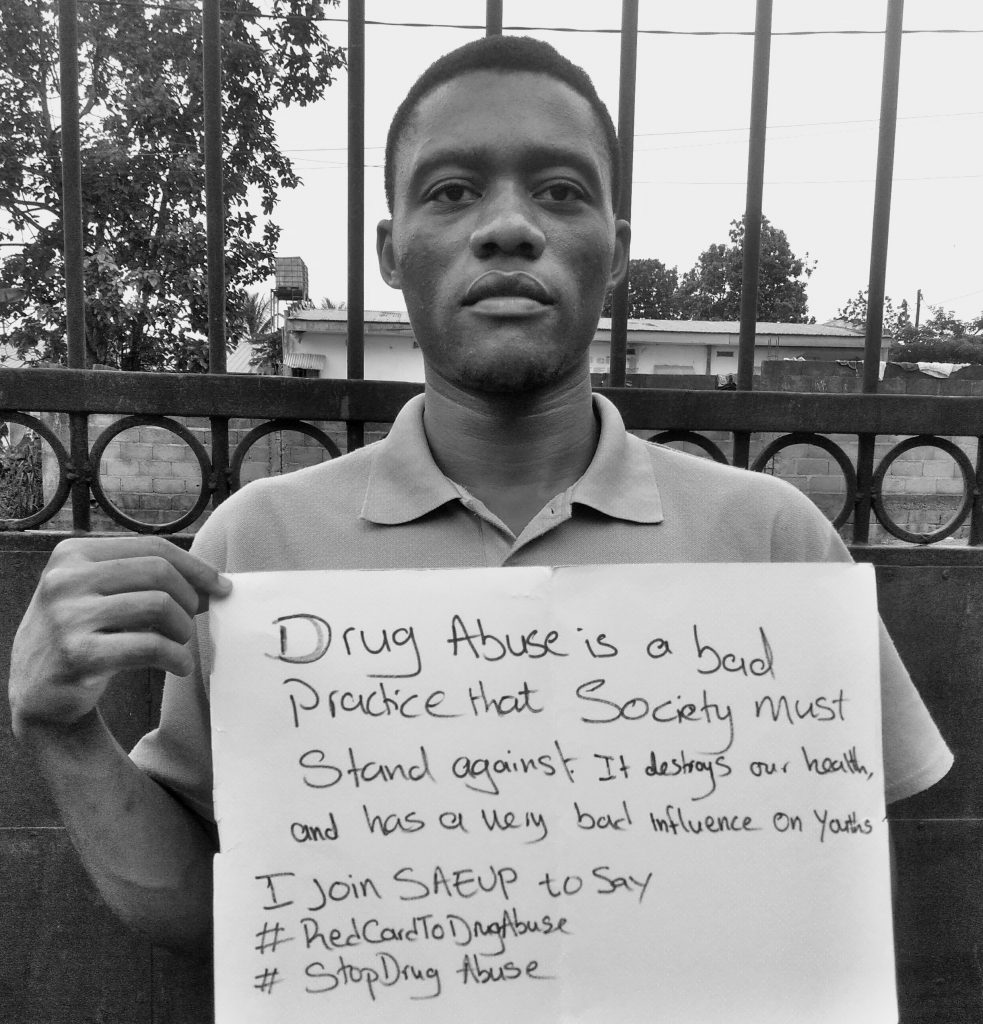 Drug Abuse is a bad
Practice that Society Must
Stand against. It destroys our health,
and has a very bad influence on Youths
I Join SAEUP to Say
# RedCardToDrugAbuse
# StopDrug Abuse